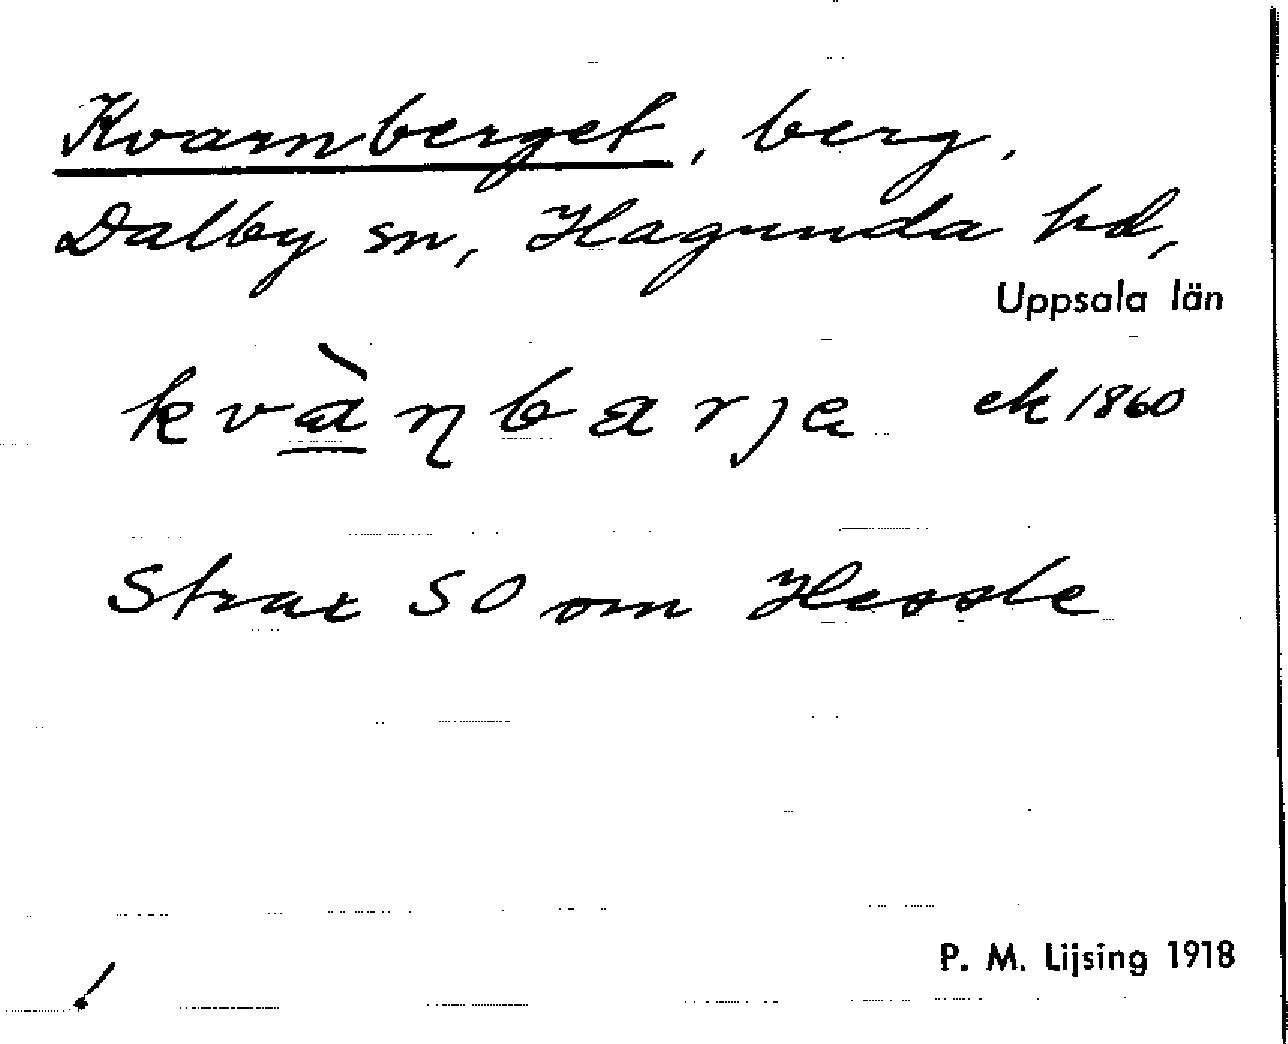 Kvarnberget, berg.
Dalby sn, Hagunda hd,
Uppsala län
kvànbarja ek 1860
Strax SO om Hessle
P. M. Lijsing 1918